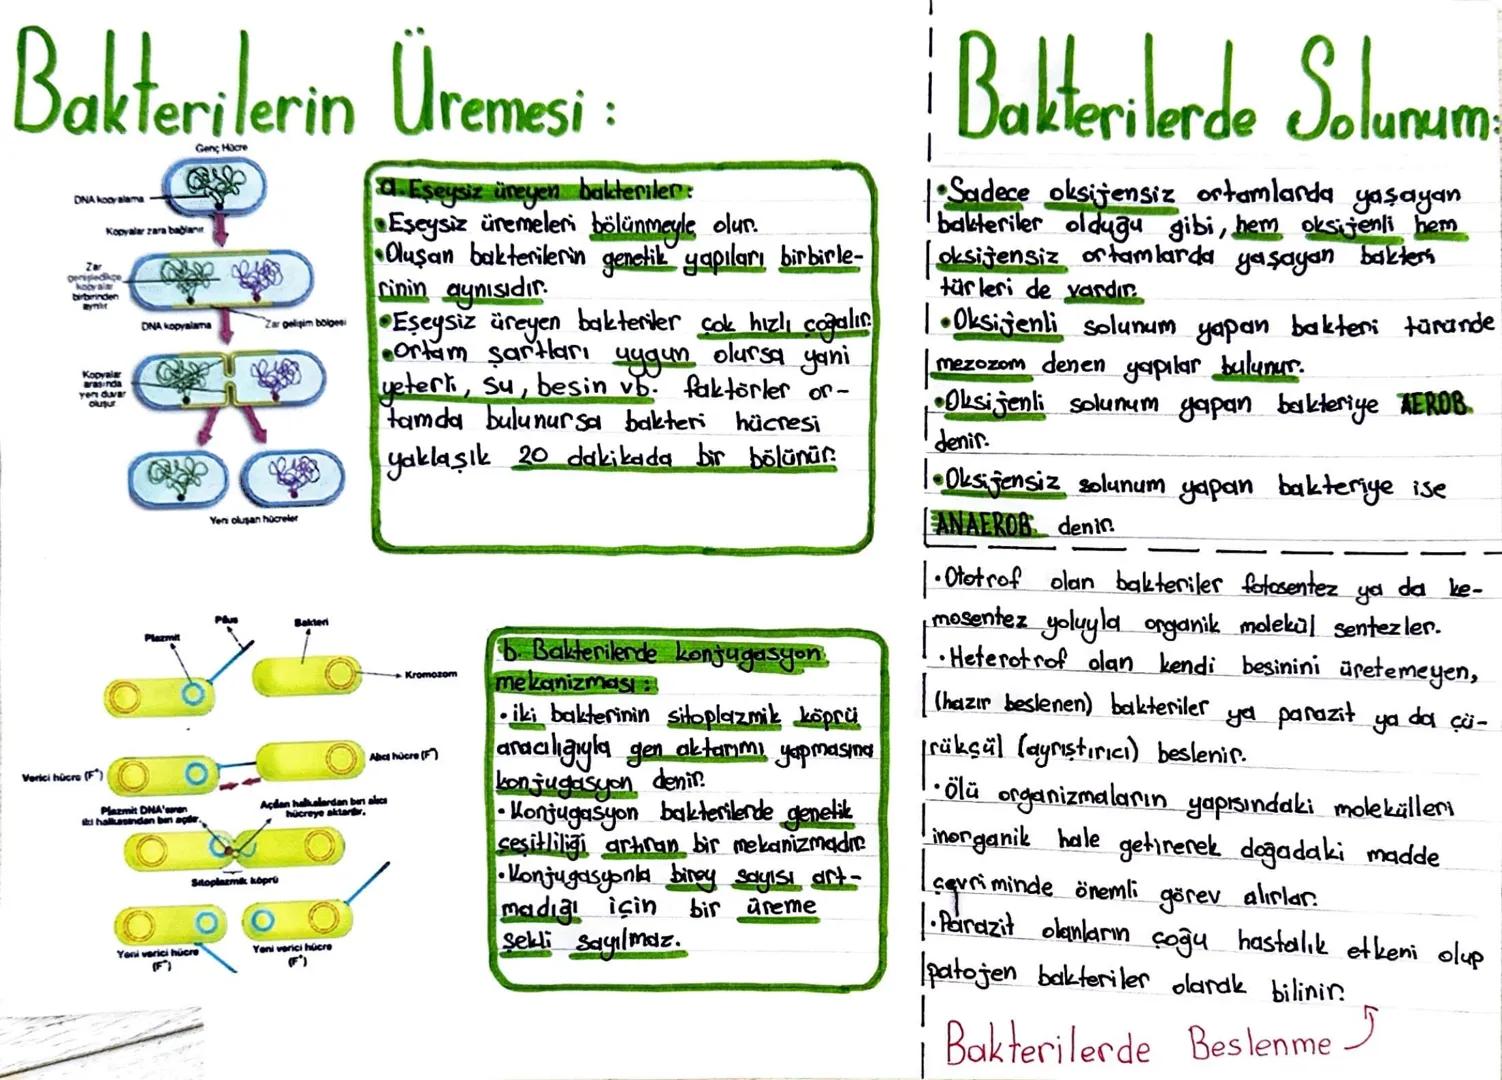 Bakterilerin Üremesi :
Genç Hücre
DNA kopyalama
Kopyalar zara bağlanır
Zar
genişledikçe
kopyalar
birbirinden
ayrılır
DNA kopyalama
Zar gelişim bölgesi
Kopyalar
arasında
yeni duvar
oluşur
Yeni oluşan hücreler
a. Eşeysiz üreyen bakteriler:
•Eşeysiz üremeleri bölünmeyle olur.
•Oluşan bakterilerin genetik yapıları birbirle-
rinin aynısıdır.
•Eşeysiz üreyen bakteriler çok hızlı çoğalır.
•Ortam şartları uygun olursa yani
yeterli, su, besin vb. faktörler or-
tamda bulunursa bakteri hücresi
yaklaşık 20 dakikada bir bölünür.
Plazmit
Pilus
Bakteri
Kromozom
Verici hücre (F⁺)
Alıcı hücre (F⁻)
Plazmit DNA'sının
iki halkasından biri açılır.
Açılan halkalardan biri alıcı
hücreye aktarılır.
Sitoplazmik köprü
Yeni verici hücre
(F⁺)
Yeni verici hücre
(F⁺)
b. Bakterilerde konjugasyon
mekanizması :
• iki bakterinin sitoplazmik köprü
aracılığıyla gen aktarımı yapmasına
konjugasyon denir.
• Konjugasyon bakterilerde genetik
çeşitliliği artıran bir mekanizmadır.
• Konjugasyonla birey sayısı art-
madığı için bir üreme
şekli sayılmaz.
Bakterilerde Solunum:
•Sadece oksijensiz ortamlarda yaşayan
bakteriler olduğu gibi, hem oksijenli hem
oksijensiz ortamlarda yaşayan bakteri
türleri de vardır.
•Oksijenli solunum yapan bakteri türünde
mezozom denen yapılar bulunur.
•Oksijenli solunum yapan bakteriye AEROB
denir.
•Oksijensiz solunum yapan bakteriye ise
ANAEROB denir.
• Ototrof olan bakteriler fotosentez ya da ke-
mosentez yoluyla organik molekül sentezler.
• Heterotrof olan kendi besinini üretemeyen,
(hazır beslenen) bakteriler ya parazit ya da çü-
rükçül (ayrıştırıcı) beslenir.
• Ölü organizmaların yapısındaki molekülleri
inorganik hale getirerek doğadaki madde
çevriminde önemli görev alırlar.
• Parazit olanların çoğu hastalık etkeni olup
patojen bakteriler olarak bilinir.
Bakterilerde Beslenme